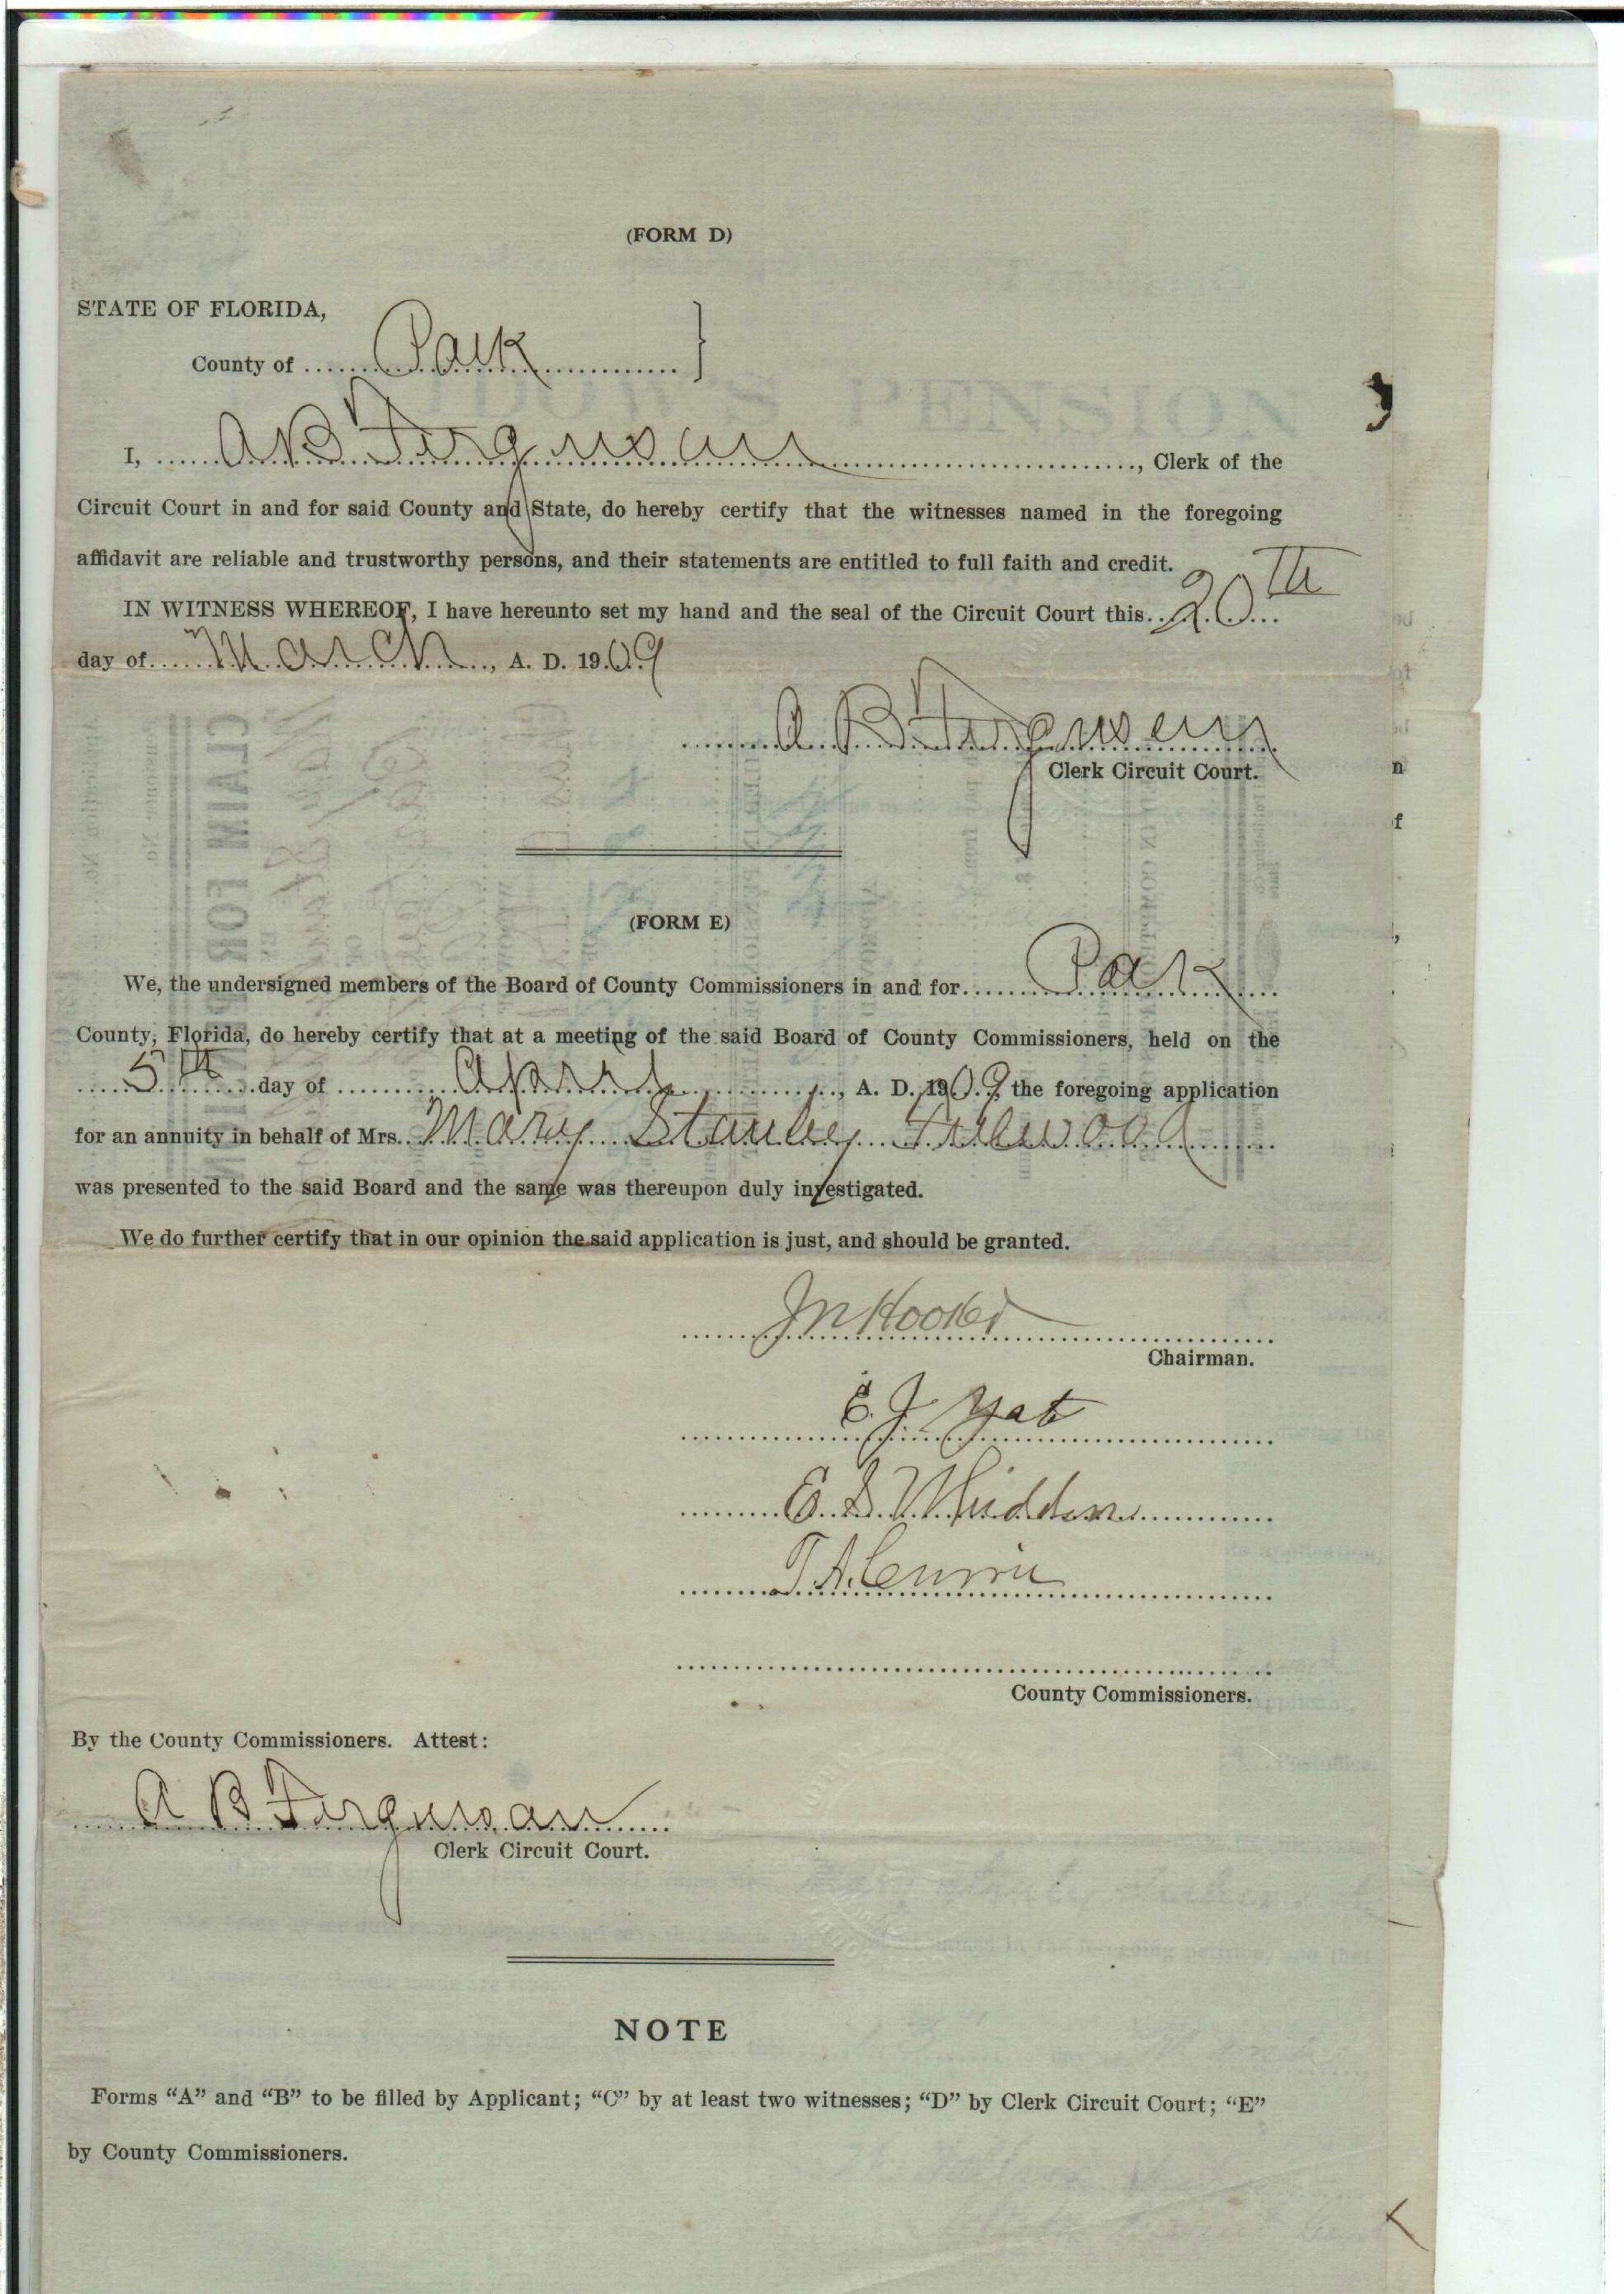 (FORM D)
STATE OF FLORIDA,
County of Polk }
I, A B Ferguson, Clerk of the
Circuit Court in and for said County and State, do hereby certify that the witnesses named in the foregoing
affidavit are reliable and trustworthy persons, and their statements are entitled to full faith and credit.
IN WITNESS WHEREOF, I have hereunto set my hand and the seal of the Circuit Court this 20th
day of March, A. D. 1909
A B Ferguson
Clerk Circuit Court.
(FORM E)
We, the undersigned members of the Board of County Commissioners in and for Polk
County, Florida, do hereby certify that at a meeting of the said Board of County Commissioners, held on the
5th day of April, A. D. 1909, the foregoing application
for an annuity in behalf of Mrs. Mary Stanley
was presented to the said Board and the same was thereupon duly investigated.
We do further certify that in our opinion the said application is just, and should be granted.
J N Hooker
Chairman.
E. J. Yat
E. S. Whidden
T. A. Currie
County Commissioners.
By the County Commissioners. Attest:
A B Ferguson
Clerk Circuit Court.
NOTE
Forms “A” and “B” to be filled by Applicant; “C” by at least two witnesses; “D” by Clerk Circuit Court; “E”
by County Commissioners.